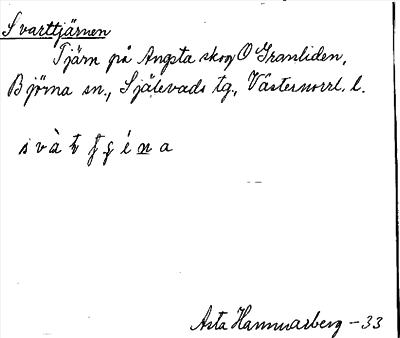 Svarttjärnen
Tjärn på Angsta skog O Granliden,
Björna sn., Själevads tg., Västernorrl. l.
Asta Hammarberg - 33